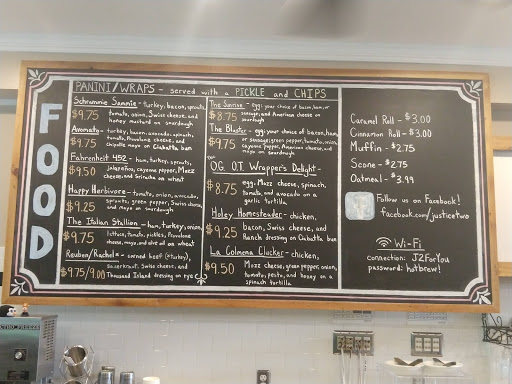 FOOD
PANINI/WRAPS - served with a PICKLE and CHIPS
Schrummie Sammie - turkey, bacon, sprouts,
$9.75 tomato, onion, Swiss cheese, and
honey mustard on sourdough
Avomato - turkey, bacon, avocado, spinach,
$9.75 tomato, Provolone cheese, and
chipotle mayo on Ciabatta bun
Fahrenheit 452 - ham, turkey, sprouts,
$9.50 jalapeños, cayenne pepper, Mozz
cheese, and Sriracha on wheat
Happy Herbivore - tomato, onion, avocado,
$9.25 sprouts, green pepper, Swiss cheese,
and mayo on sourdough
The Italian Stallion - ham, turkey, onion,
$9.75 lettuce, tomato, pickles, Provolone
cheese, mayo, and olive oil on wheat
Reuben/Rachel* - corned beef (*turkey),
sauerkraut, Swiss cheese, and
$9.75/9.00 Thousand Island dressing on rye
The Sunrise - egg, your choice of bacon, ham, or
$8.75 sausage, and American cheese on
sourdough
The Blaster - egg, your choice of bacon, ham,
$9.75 or sausage, green pepper, tomato, onion,
cayenne pepper, American cheese, and
mayo on sourdough
O.G. O.T. Wrapper's Delight -
$8.75 egg, Mozz cheese, spinach,
tomato, and avocado on a
garlic tortilla
Holey Homesteader - chicken,
$9.25 bacon, Swiss cheese, and
Ranch dressing on Ciabatta bun
La Colmena Clucker - chicken,
$9.50 Mozz cheese, green pepper, onion,
tomato, pesto, and honey on a
spinach tortilla
Caramel Roll - $3.00
Cinnamon Roll - $3.00
Muffin - $2.75
Scone - $2.75
Oatmeal - $3.99
Follow us on Facebook!
facebook.com/justicetwo
Wi-Fi
connection: J2ForYou
password: hotbrew!